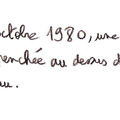 octobre 1980, une
penchée au dessus d
au.